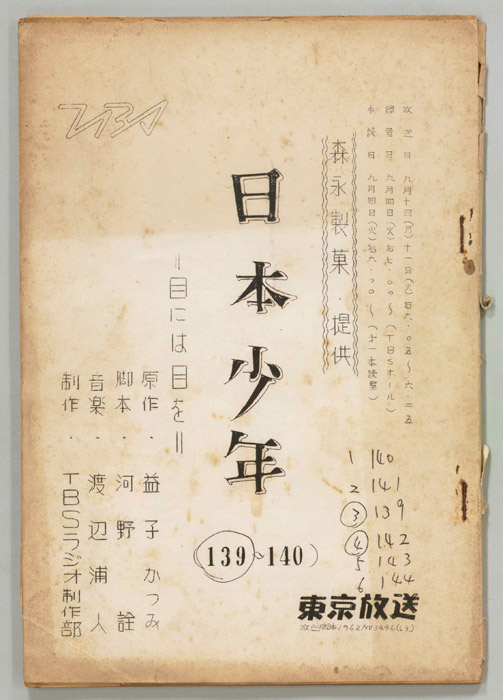 放送日 九月十日(月)十一日(火)后六・〇五〜六・二五
録音日 九月四日(火)后七・〇〇〜(TBSホール)
本読日 九月四日(火)后六・〇〇〜(才一本読室)
森永製菓・提供
TBS
日本少年
=目には目を=
原作・益子かつみ
脚本・河野詮
音楽・渡辺浦人
制作・TBSラジオ制作部
(139〜140)
1 140
2 141
3 139
4 142
5 143
6 144
東京放送